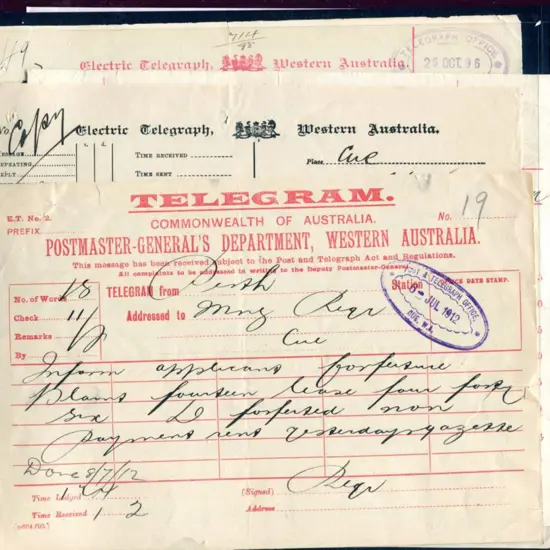 714
Electric Telegraph, Western Australia.
TELEGRAPH OFFICE
26 OCT. 96
Copy
Electric Telegraph, Western Australia.
REPEATING
REPLY
TIME RECEIVED
TIME SENT
Place Cue
TELEGRAM.
E.T. No. 2.
COMMONWEALTH OF AUSTRALIA.
No. 19
PREFIX
POSTMASTER-GENERAL'S DEPARTMENT, WESTERN AUSTRALIA.
This message has been received subject to the Post and Telegraph Act and Regulations.
All complaints to be addressed in writing to the Deputy Postmaster-General
No. of Words 18
TELEGRAM from Perth
Station
OFFICE DATE STAMP.
POST & TELEGRAPH OFFICE
JUL 1912
CUE, W.A.
Check 11/
Addressed to Mng Regr
Remarks
Cue
By
Inform applicant forfeiture
Plaint fourteen lease four forty
six D forfeited non
payment rent yesterdays gazette
Done 8/7/12
Time Lodged
(Signed) Regr
Time Received 1 2
Address